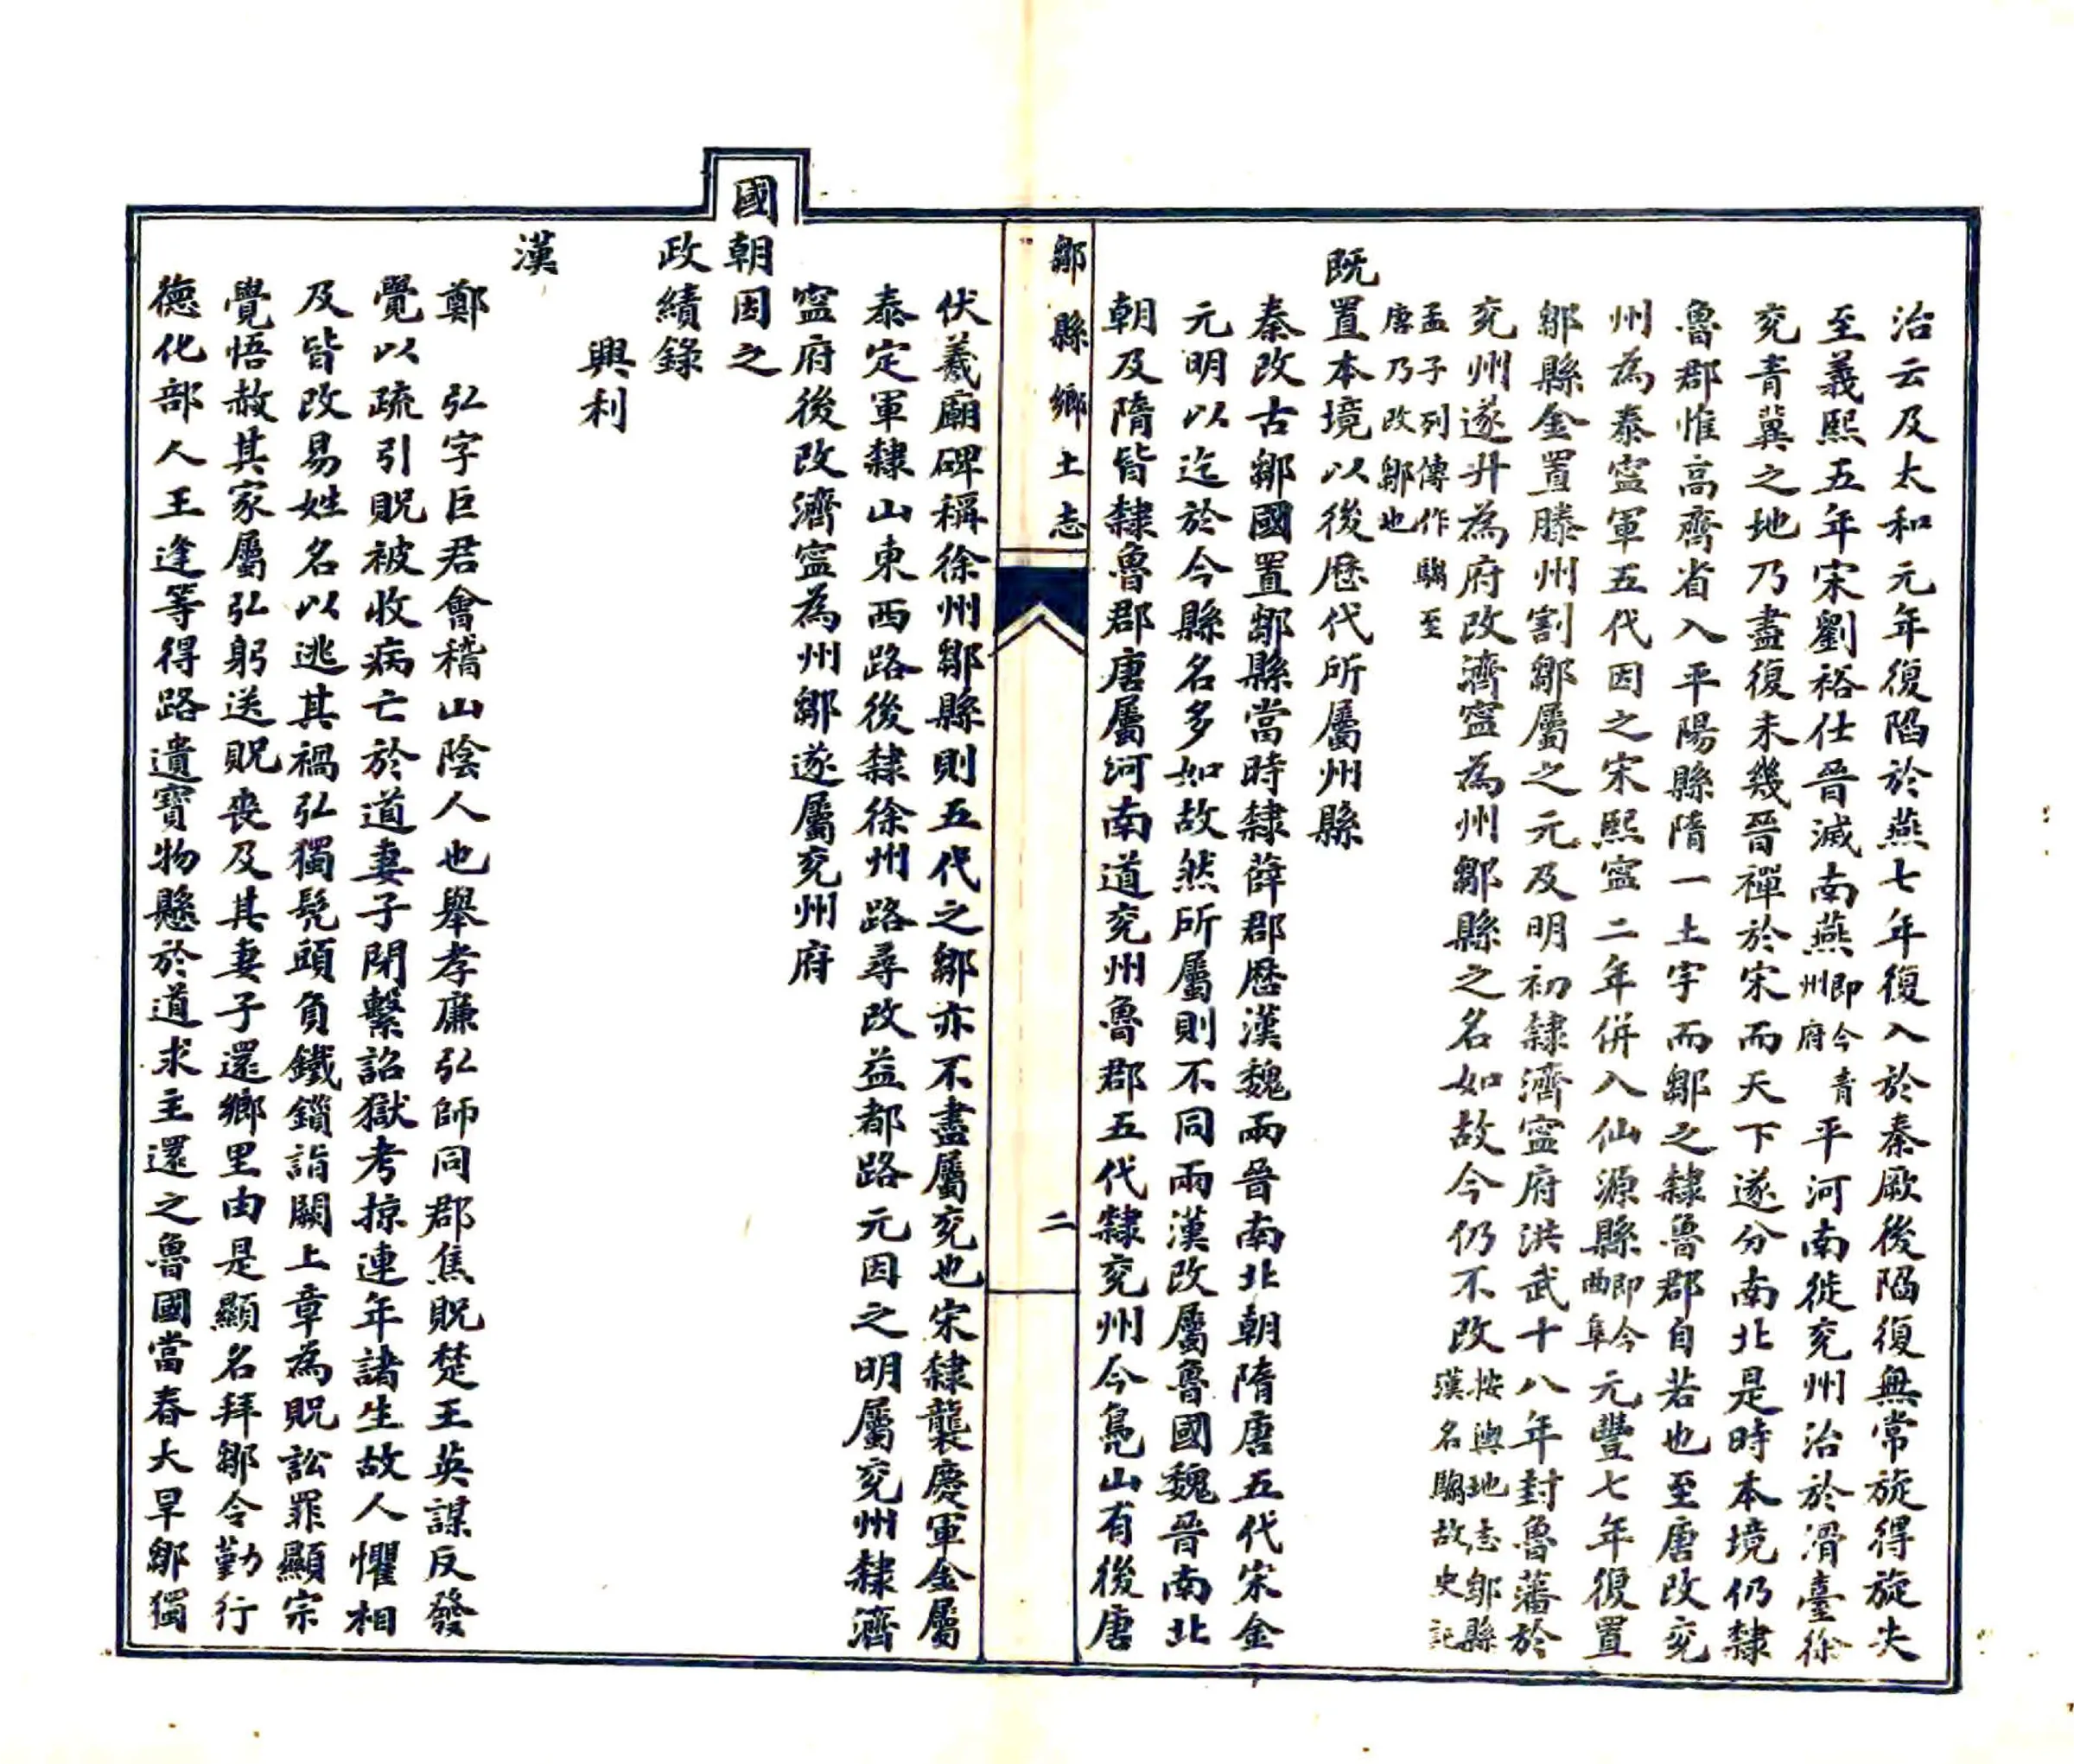 治云及太和元年復陷於燕七年復入於秦厥後陷復無常旋得旋失
至義熙五年宋劉裕仕晉滅南燕即今青州府平河南徙兖州治於滑臺徐
兖青冀之地乃盡復未幾晉禪於宋而天下遂分南北是時本境仍隸
魯郡惟高齊省入平陽縣隋一土宇而鄒之隸魯郡自若也至唐改兖
州為泰寍軍五代因之宋熙寍二年併入仙源縣即今曲阜元豐七年復置
鄒縣金置滕州割鄒屬之元及明初隸濟寍府洪武十八年封魯藩於
兖州遂升為府改濟寍為州鄒縣之名如故今仍不改按輿地志鄒縣漢名騶故史記
孟子列傳作騶至唐乃改鄒也
既置本境以後歷代所屬州縣
秦改古鄒國置鄒縣當時隸薛郡歷漢魏兩晉南北朝隋唐五代宋金
元明以迄於今縣名多如故然所屬則不同兩漢改屬魯國魏晉南北
朝及隋皆隸魯郡唐屬河南道兖州魯郡五代隸兖州今鳧山有後唐
鄒縣鄉土志
二
伏羲廟碑稱徐州鄒縣則五代之鄒亦不盡屬兖也宋隸襲慶軍金屬
泰定軍隸山東西路後隸徐州路尋改益都路元因之明屬兖州隸濟
寍府後改濟寍為州鄒遂屬兖州府
國朝因之
政績錄
興利
漢
鄭弘字巨君會稽山陰人也舉孝廉弘師同郡焦貺楚王英謀反發
覺以疏引貺被收病亡於道妻子閉繫詔獄考掠連年諸生故人懼相
及皆改易姓名以逃其禍弘獨髡頭負鐵鑕詣闕上章為貺訟罪顯宗
覺悟赦其家屬弘躬送貺喪及其妻子還鄉里由是顯名拜鄒令勤行
德化部人王逢等得路遺寶物懸於道求主還之魯國當春大旱鄒獨